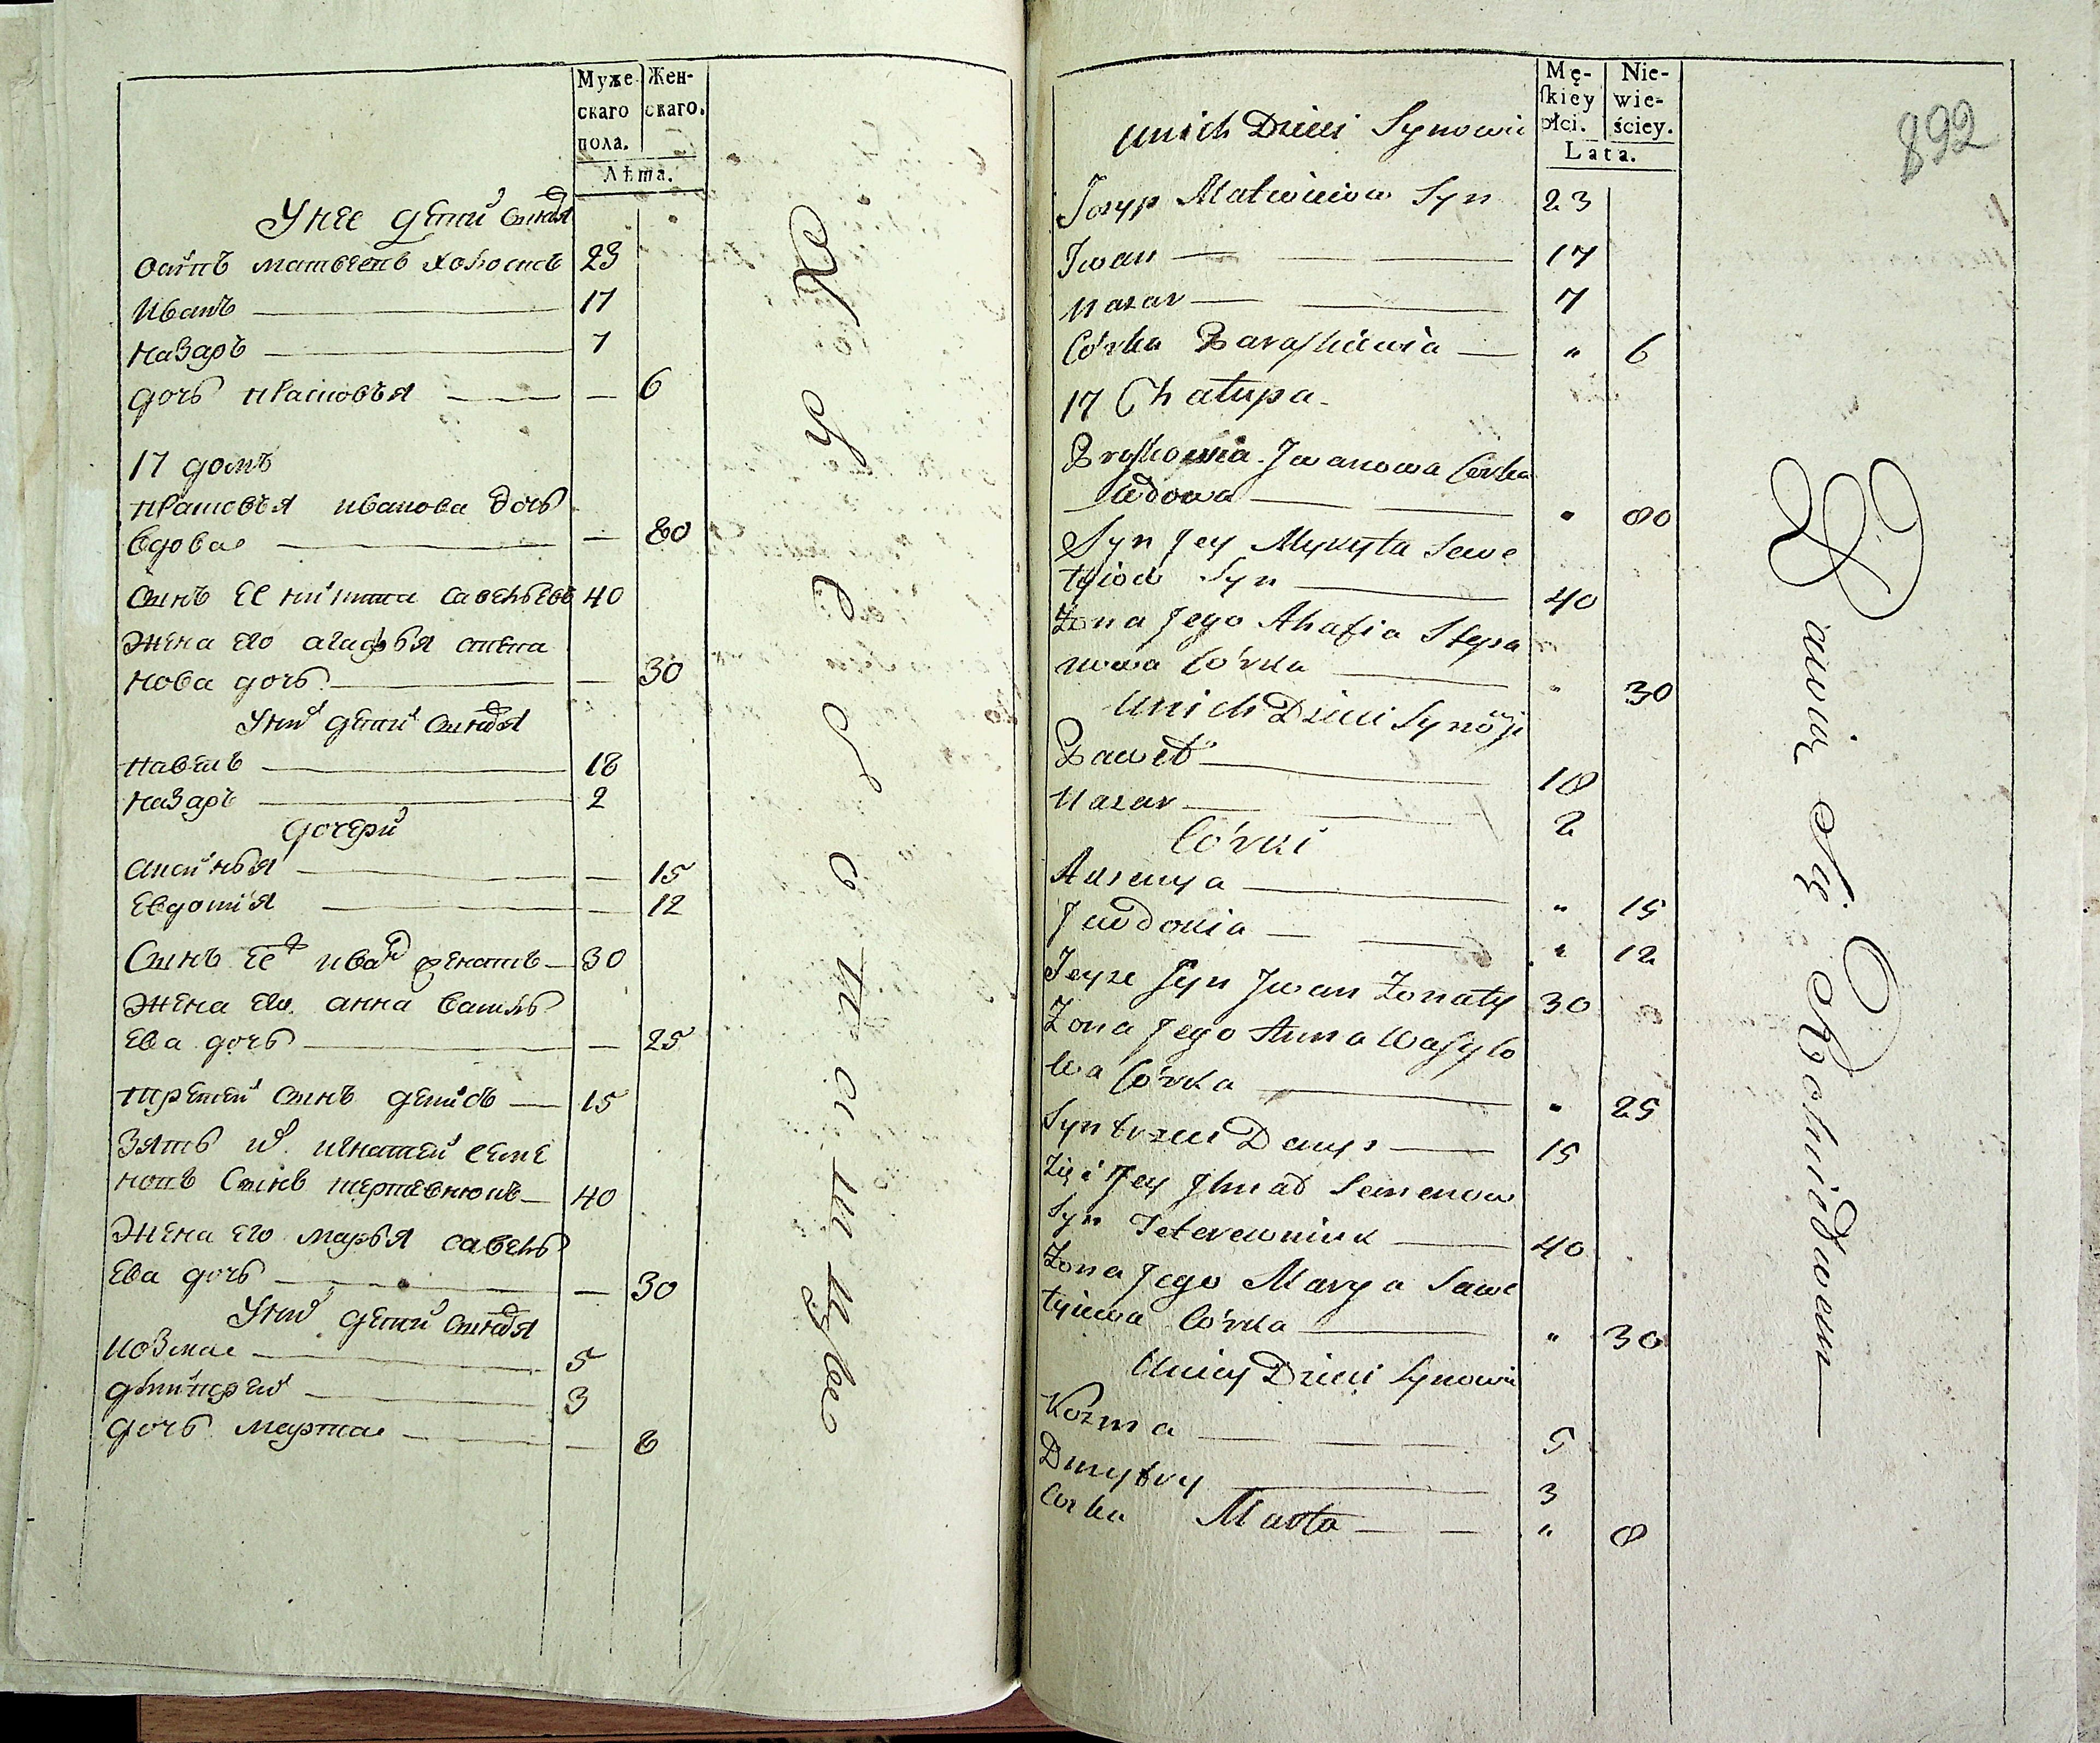 Муже- Жен-
скаго скаго.
пола.
Лѣта.
У нее детей сыновья
Осипъ матвеевъ холостъ 23
Иванъ 17
назаръ 7
дочь прасковья — 6
17 домъ
прасковья иванова дочь
вдова — 80
Сынъ ее никита савельевъ 40
Жена его агафья степа
нова дочь — 30
У них детей сыновья
павелъ 18
назаръ 2
дочери
аксинья — 15
Евдокия — 12
Сынъ ее иванъ женатъ 30
Жена его анна василь
ева дочь — 25
третей сынъ денисъ 15
Зять их игнатей семе
новъ Сынъ 40
Жена его марья савель
ева дочь — 30
У них детей сыновья
козма 5
дмитрей 3
дочь марта — 8
Mę- Nie-
ſkiey wie-
płci. ściey.
Lata.
892
Unich Dzieci Synowie
Josyp Matwieiow Syn 23
Jwan 17
Nazar 7
Córka Paraſkiewia " 6
17 Chałupa
Praſkowia Jwanowa Corka
wdowa " 80
Syn Jey Mykyta Sawe
tyiow Syn 40
Żona Jego Ahafia Stepa
nowa Córka " 30
Unich Dzieci Synowie
Paweł 18
Nazar 2
Córki
Auxenya " 15
Jewdokia " 12
Jeyze Syn Jwan Żonaty 30
Żona Jego Anna Wasyle
wa Córka " 25
Syn trzeci Denys 15
Zięć Jey Jhnad Semenow
Syn Teterewniuk 40
Żona Jego Marya Sawe
tyiewa Córka " 30
Uniey Dzieci Synowie
Kozma 5
Dmytry 3
Corka Marta " 8